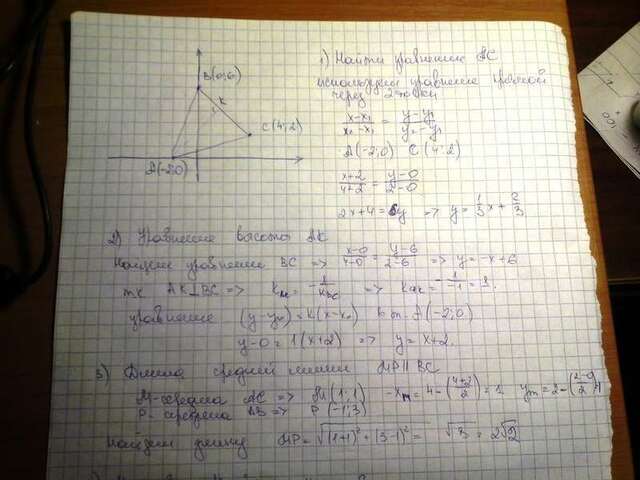 B(0;6)
K
C(4;2)
A(-2;0)
1) Найти уравнение AC
используем уравнение прямой
через 2 точки
(x-x₁)/(x₂-x₁) = (y-y₁)/(y₂-y₁)
A(-2;0) C(4;2)
(x+2)/(4+2) = (y-0)/(2-0)
2x+4=6y => y = 1/3 x + 2/3
2) Уравнение высоты AK
Найдем уравнение BC => (x-0)/(4-0) = (y-6)/(2-6) => y=-x+6
т.к AK⊥BC => = -1/k_BC => k_AK = -1/-1 = 1.
уравнение (y-y₀)=k(x-x₀) A(-2;0)
y-0=1(x+2) => y=x+2.
3) Длина средней линии MP||BC
M-середина AC => M(1;1) -x_m=4-((4+2)/2)=1 y_m=2-((2-0)/2)=1
P-середина AB => P(-1;3)
Найдем длину MP=√((1+1)²+(3-1)²) = = 2√2